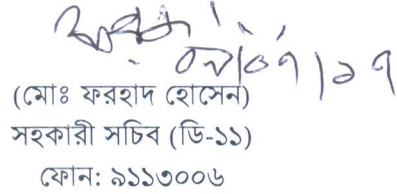 ০৯/০৭/১৭
(মোঃ ফরহাদ হোসেন)
সহকারী সচিব (ডি-১১)
ফোন: ৯১১৩০০৬